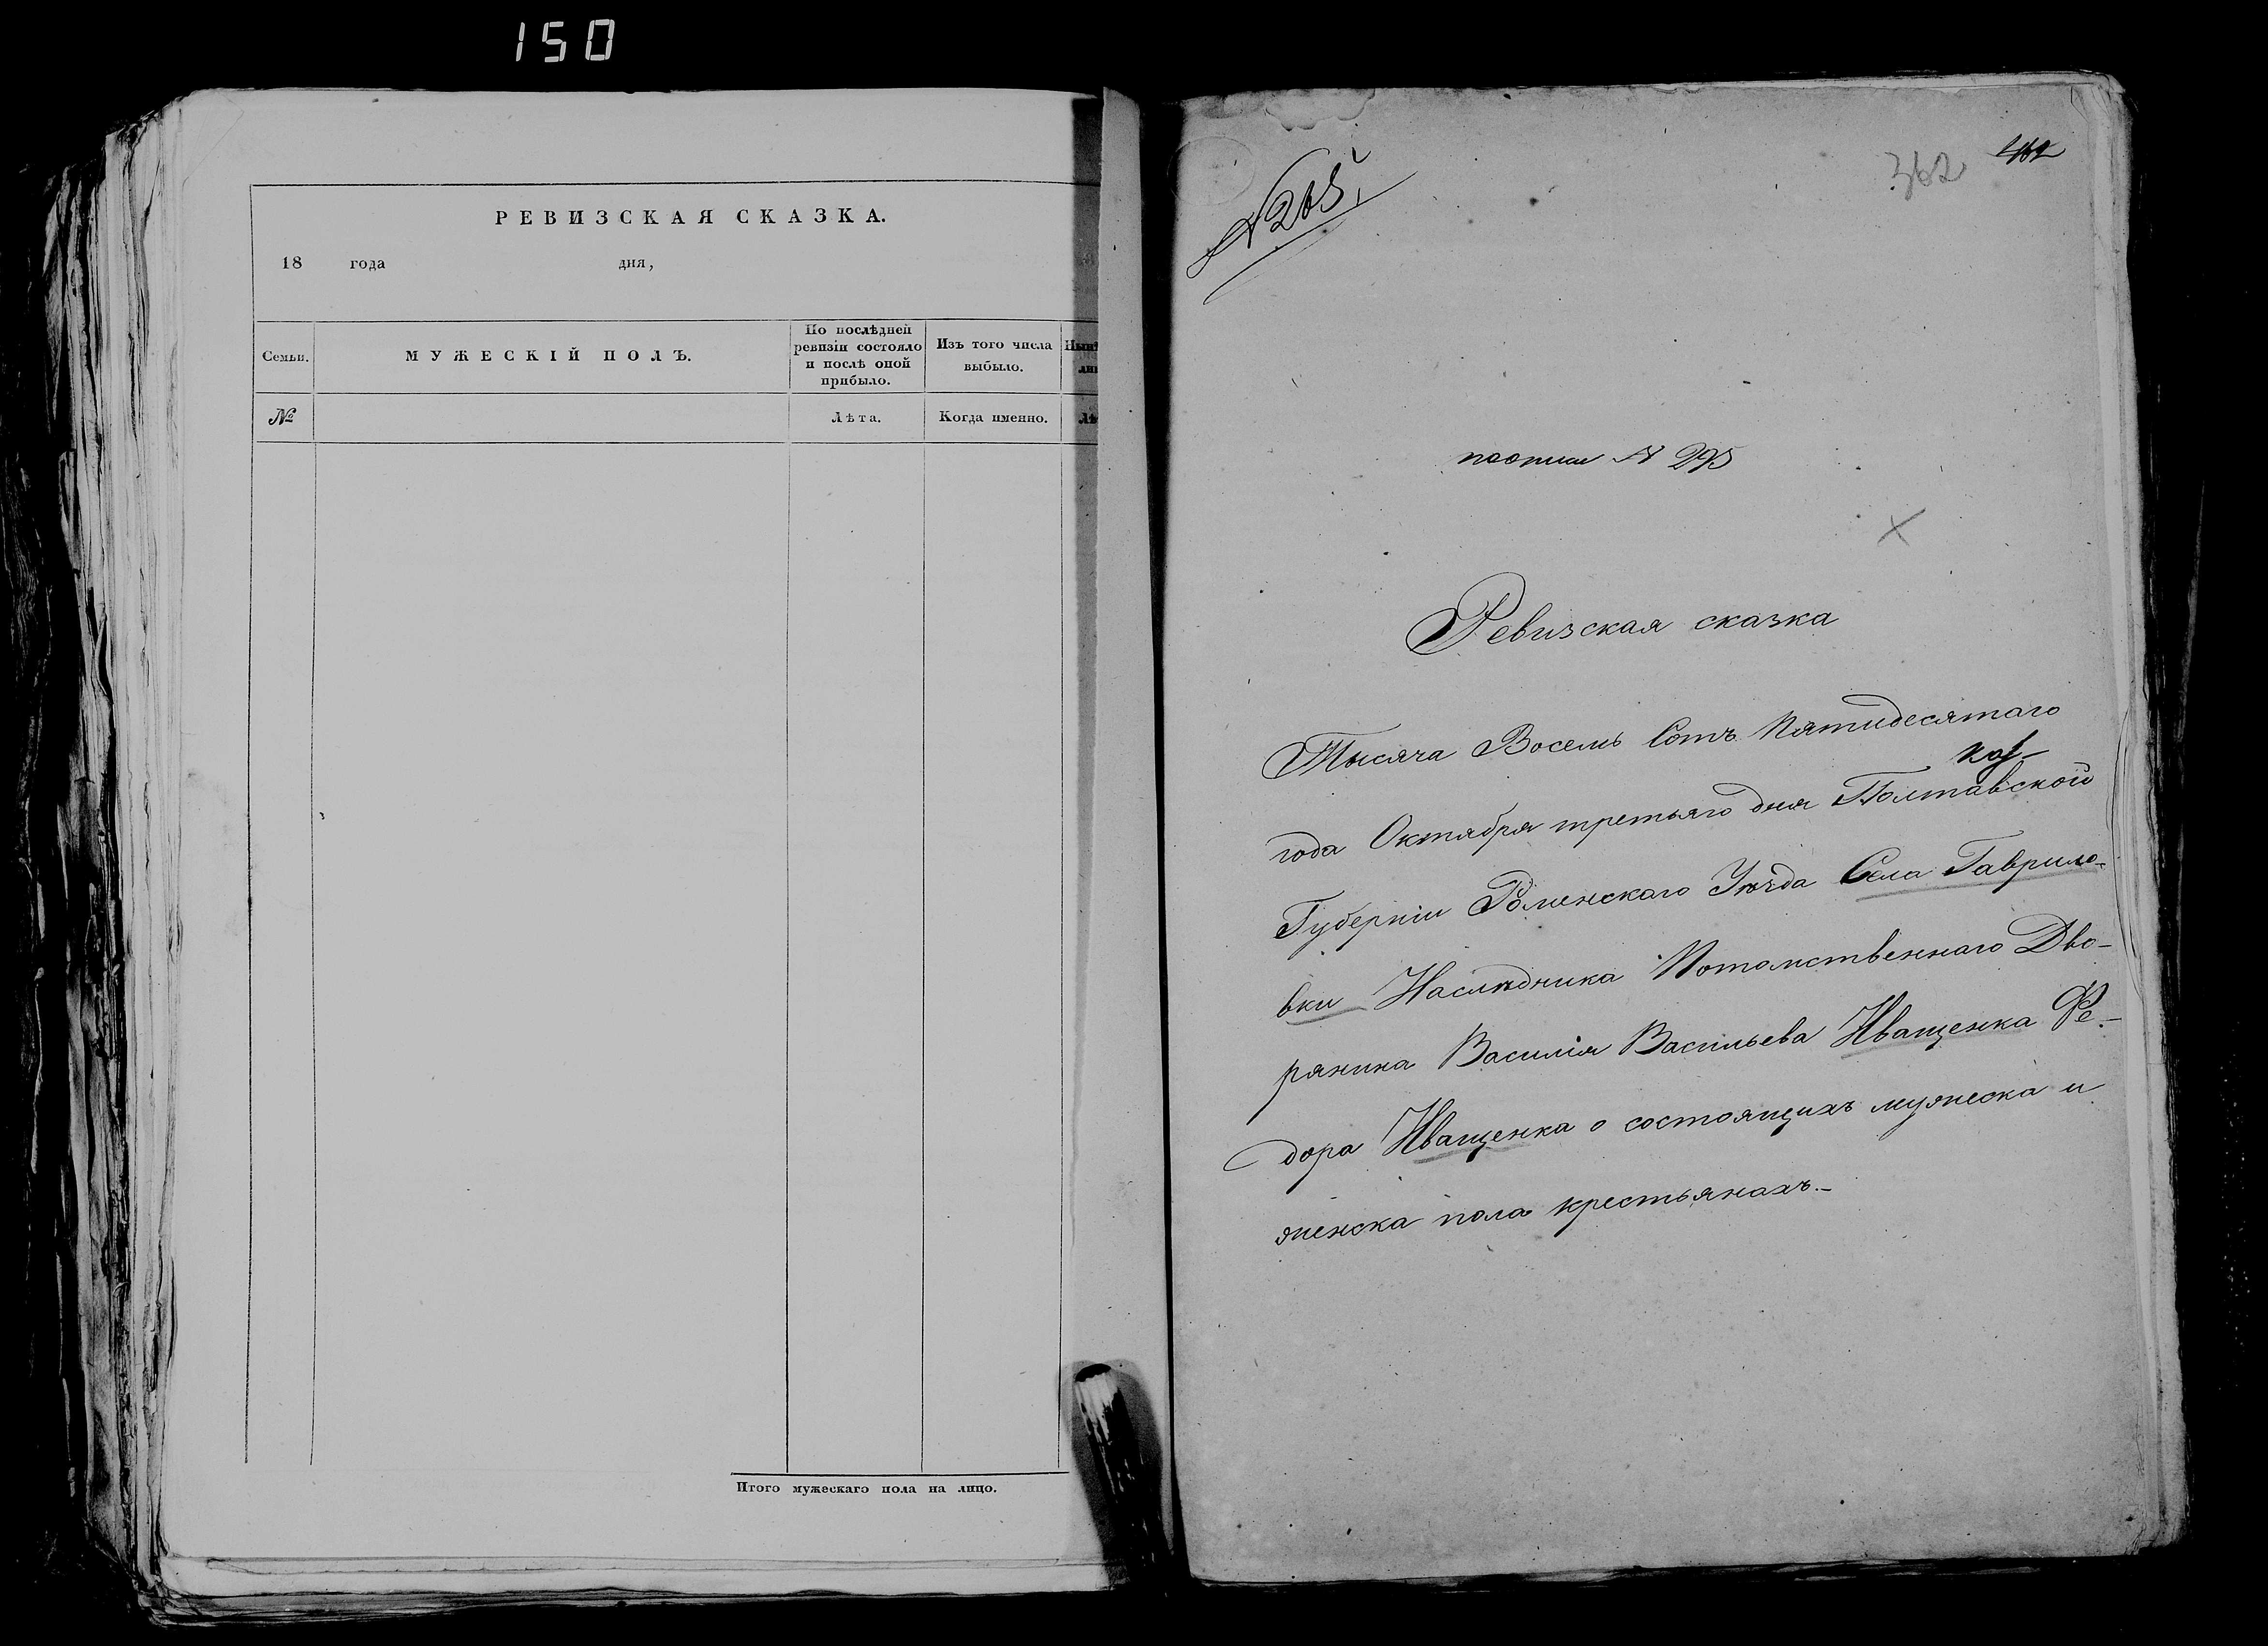 150
РЕВИЗСКАЯ СКАЗКА.
18 года дня,
Семьи.
МУЖЕСКІЙ ПОЛЪ.
По послѣдней
ревизіи состояло
и послѣ оной
прибыло.
Изъ того числа
выбыло.
№
Лѣта.
Когда именно.
Итого мужескаго пола на лицо.
362
№ 295
Ревизская сказка
Тысяча Восемь Сотъ Пятидесятаго
года Октября третьяго дня Полтавской
Губерніи Роменскаго Уѣзда Села Гаврило-
вки Наслѣдника Потомственнаго Дво-
рянина Василія Васильева Иващенка Фе-
дора Иващенка о состоящихъ мужеска и
женска пола крестьянахъ.-